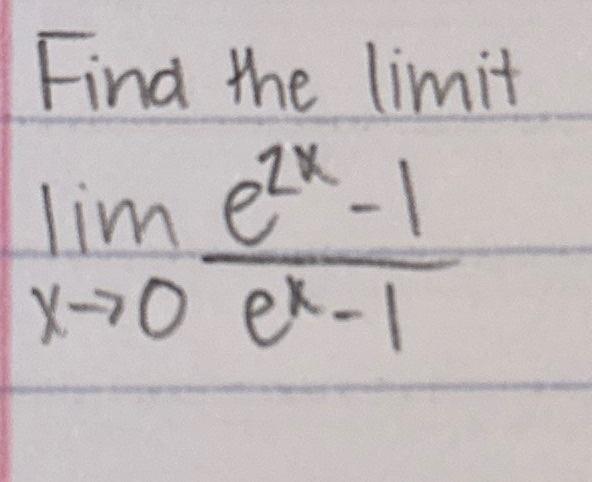 Find the limit
lim e^{2x} - 1
x→0 e^x - 1